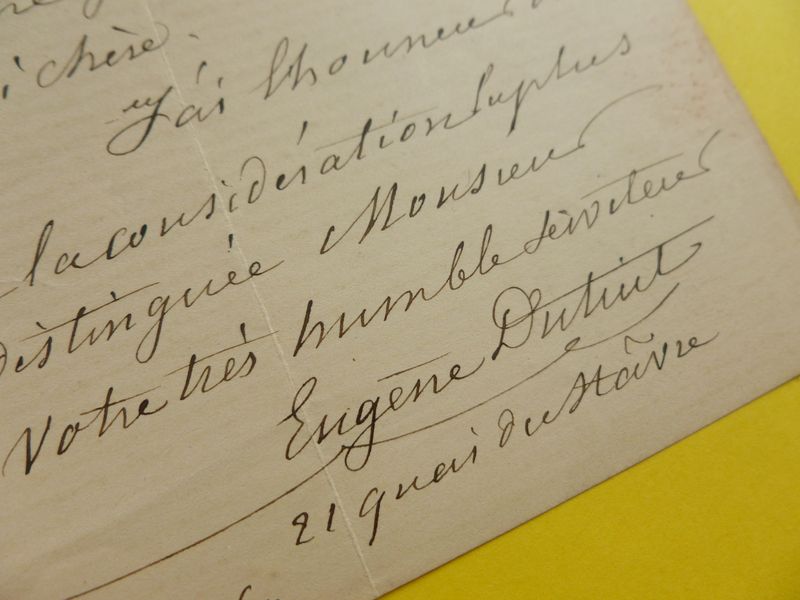 chère.
J'ai l'honneur
la considération la plus
distinguée Monsieur
Votre très humble serviteur
Eugène Dutuit
21 quai du Hâvre